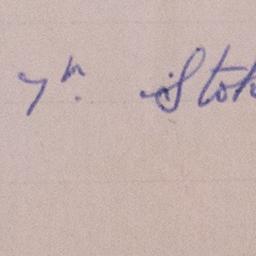 7th. Stok